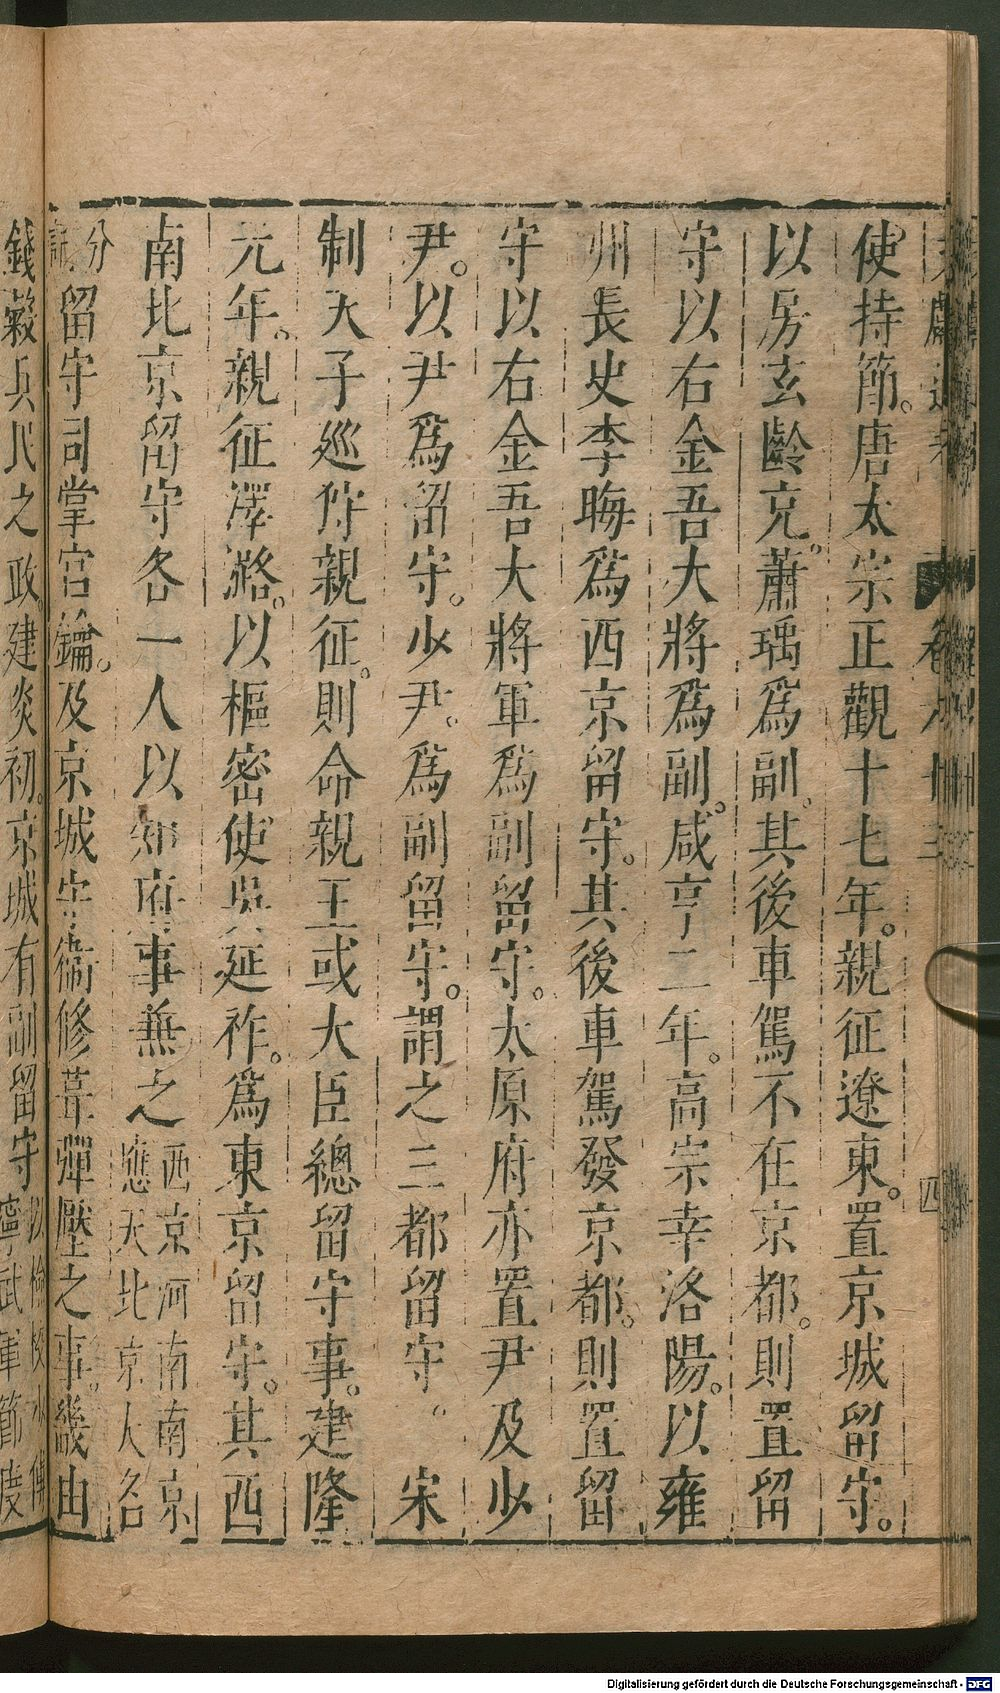 使持節。唐太宗正觀十七年。親征遼東。置京城留守。
以房玄齡充。蕭瑀爲副。其後車駕不在京都。則置留
守以右金吾大將爲副。咸亨二年。高宗幸洛陽。以雍
州長史李晦爲西京留守。其後車駕發京都。則置留
守以右金吾大將軍爲副留守。太原府亦置尹及少
尹。以尹爲留守。少尹。爲副留守。謂之三都留守。宋
制天子廵狩親征。則命親王或大臣總留守事。建隆
元年。親征澤潞。以樞密使吳延祚。爲東京留守。其西
南北京留守各一人以知府事兼之西京河南南京
應天北京人名
分
留守司掌宮鑰。及京城守衞修葺彈壓之事。畿由
錢穀兵民之政。建炎初。京城有副留守以檢校少傅
寧武軍節度
四
Digitalisierung gefördert durch die Deutsche Forschungsgemeinschaft - DFG